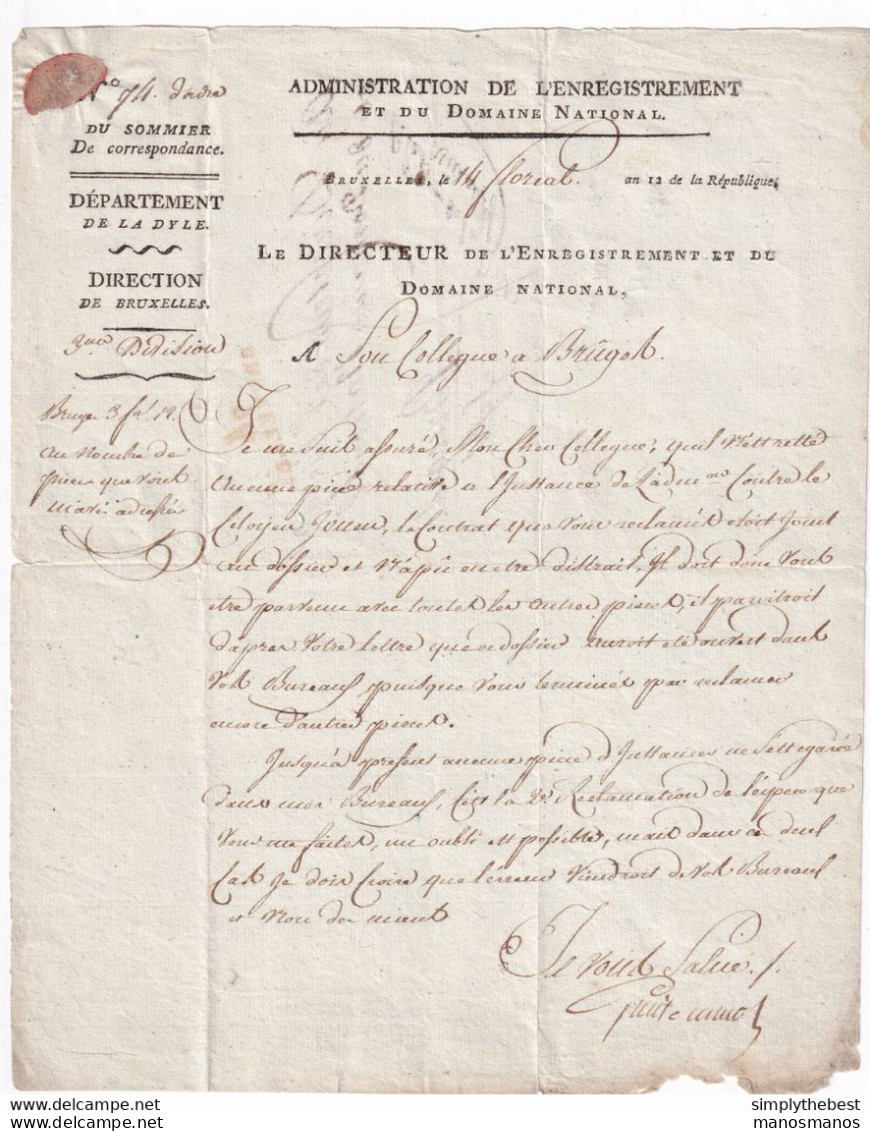 N° 74. d'ordre
DU SOMMIER
De correspondance.
DÉPARTEMENT
DE LA DYLE.
DIRECTION
DE BRUXELLES.
3me Division
ADMINISTRATION DE L'ENREGISTREMENT
ET DU DOMAINE NATIONAL.
BRUXELLES, le 14 floreal an 12 de la République.
LE DIRECTEUR DE L'ENREGISTREMENT ET DU
DOMAINE NATIONAL,
A Son Collegue a Bruges.
au nombre de
pieces que vous
m'avez adressées
Je me suis assuré, Mon Cher Collegue, qu'il n'est resté
aucune piece relative a l'Instance de L'adm.on Contre le
Citoyen, le Contrat que vous reclamés etoit Joint
au dossier et n'a pû en etre distrait, Il doit donc vous
etre parvenu avec toutes les autres pieces, il paroitroit
d'apres votre lettre que ce dossier auroit été ouvert dans
vos Bureaux puisque vous terminés par reclamer
encore d'autres pieces.
Jusqu'a present aucune piece d'Instances ne s'est egarée
dans mes Bureaux, C'est la 2e Reclamation de l'espece que
vous me faites, un oubli est possible, mais dans ce
Cas Je dois Croire que l'erreur viendroit de vos Bureaux
et non des miens
Je vous Salue.
simplythebest
manosmanos